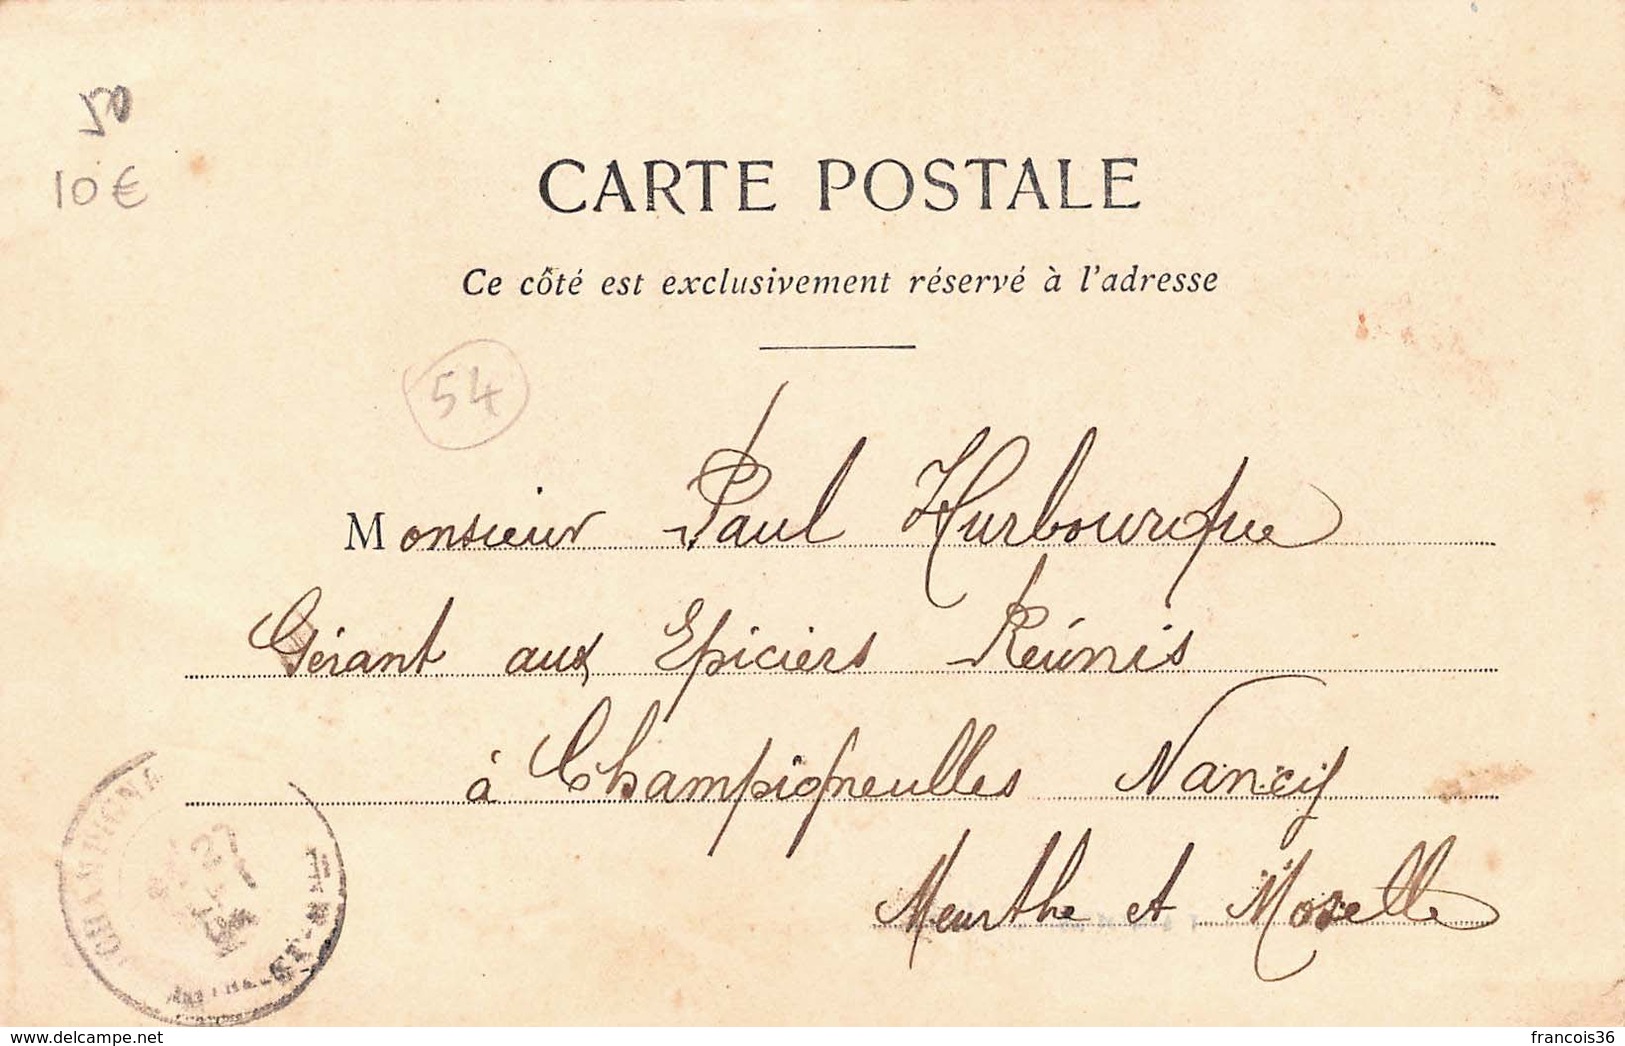 50
10€
CARTE POSTALE
Ce côté est exclusivement réservé à l'adresse
54
Monsieur Paul Hurbourque
Gérant aux Epiciers Réunis
à Champigneulles Nancy
Meurthe et Moselle
CHAMPIGNE
27
www.delcampe.net
francois36